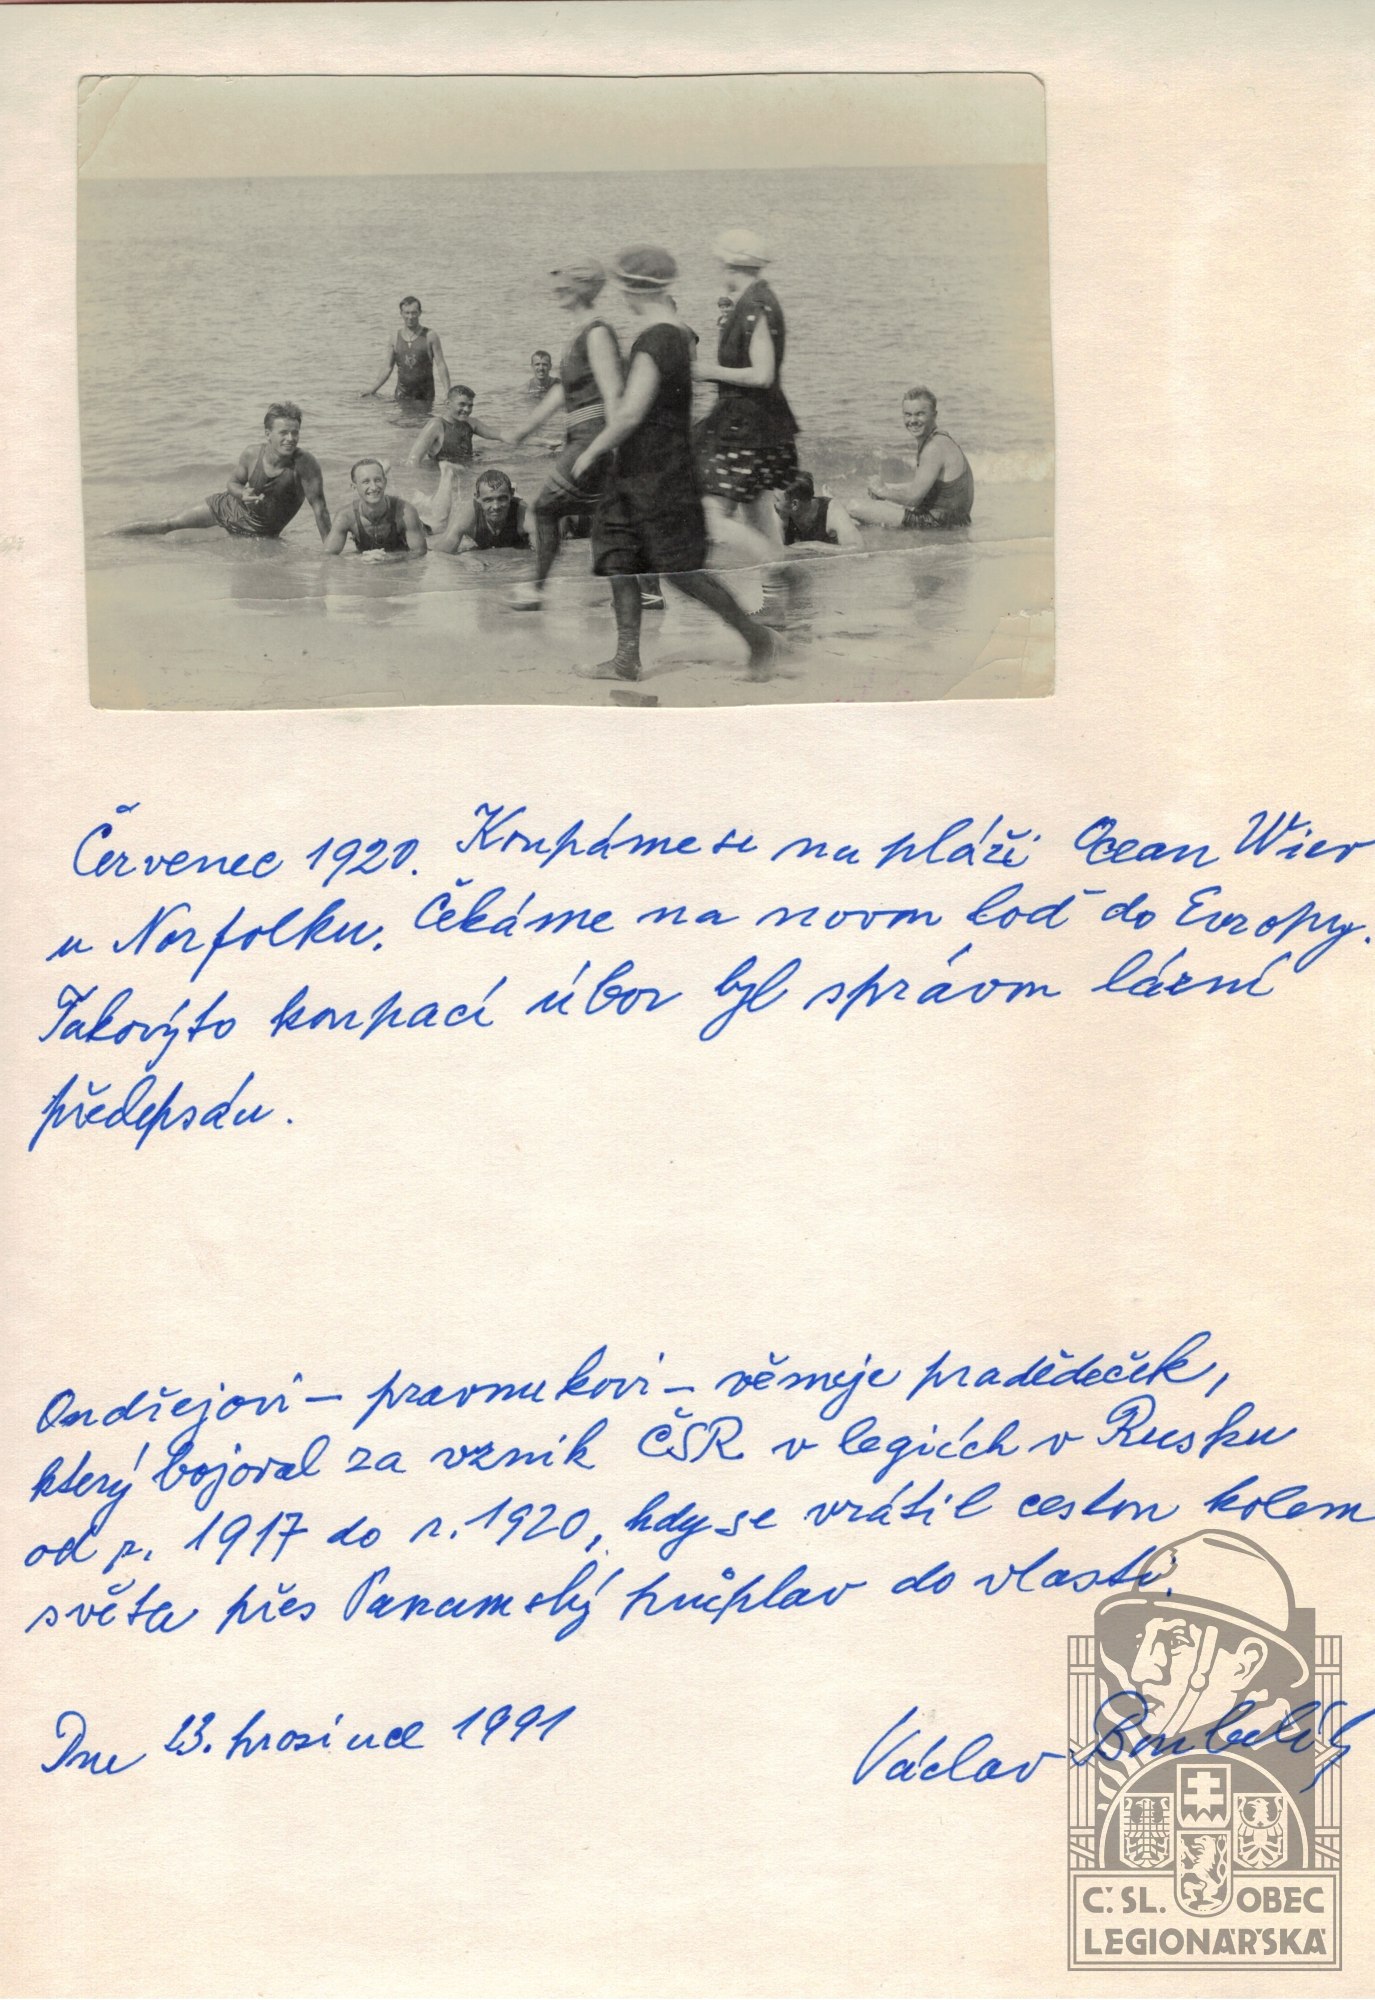 Červenec 1920. Koupáme se na pláži Ocean Wiev
u Norfolku. Čekáme na novou loď do Evropy.
Takovýto koupací úbor byl správou lázní
předepsán.
Ondřejovi – pravnukovi – věnuje pradědeček,
který bojoval za vznik ČSR v legiích v Rusku
od r. 1917 do r. 1920, kdy se vrátil cestou kolem
světa přes Panamský průplav do vlasti.
Dne 23. prosince 1991
Václav
Č. SL. OBEC
LEGIONÁŘSKÁ